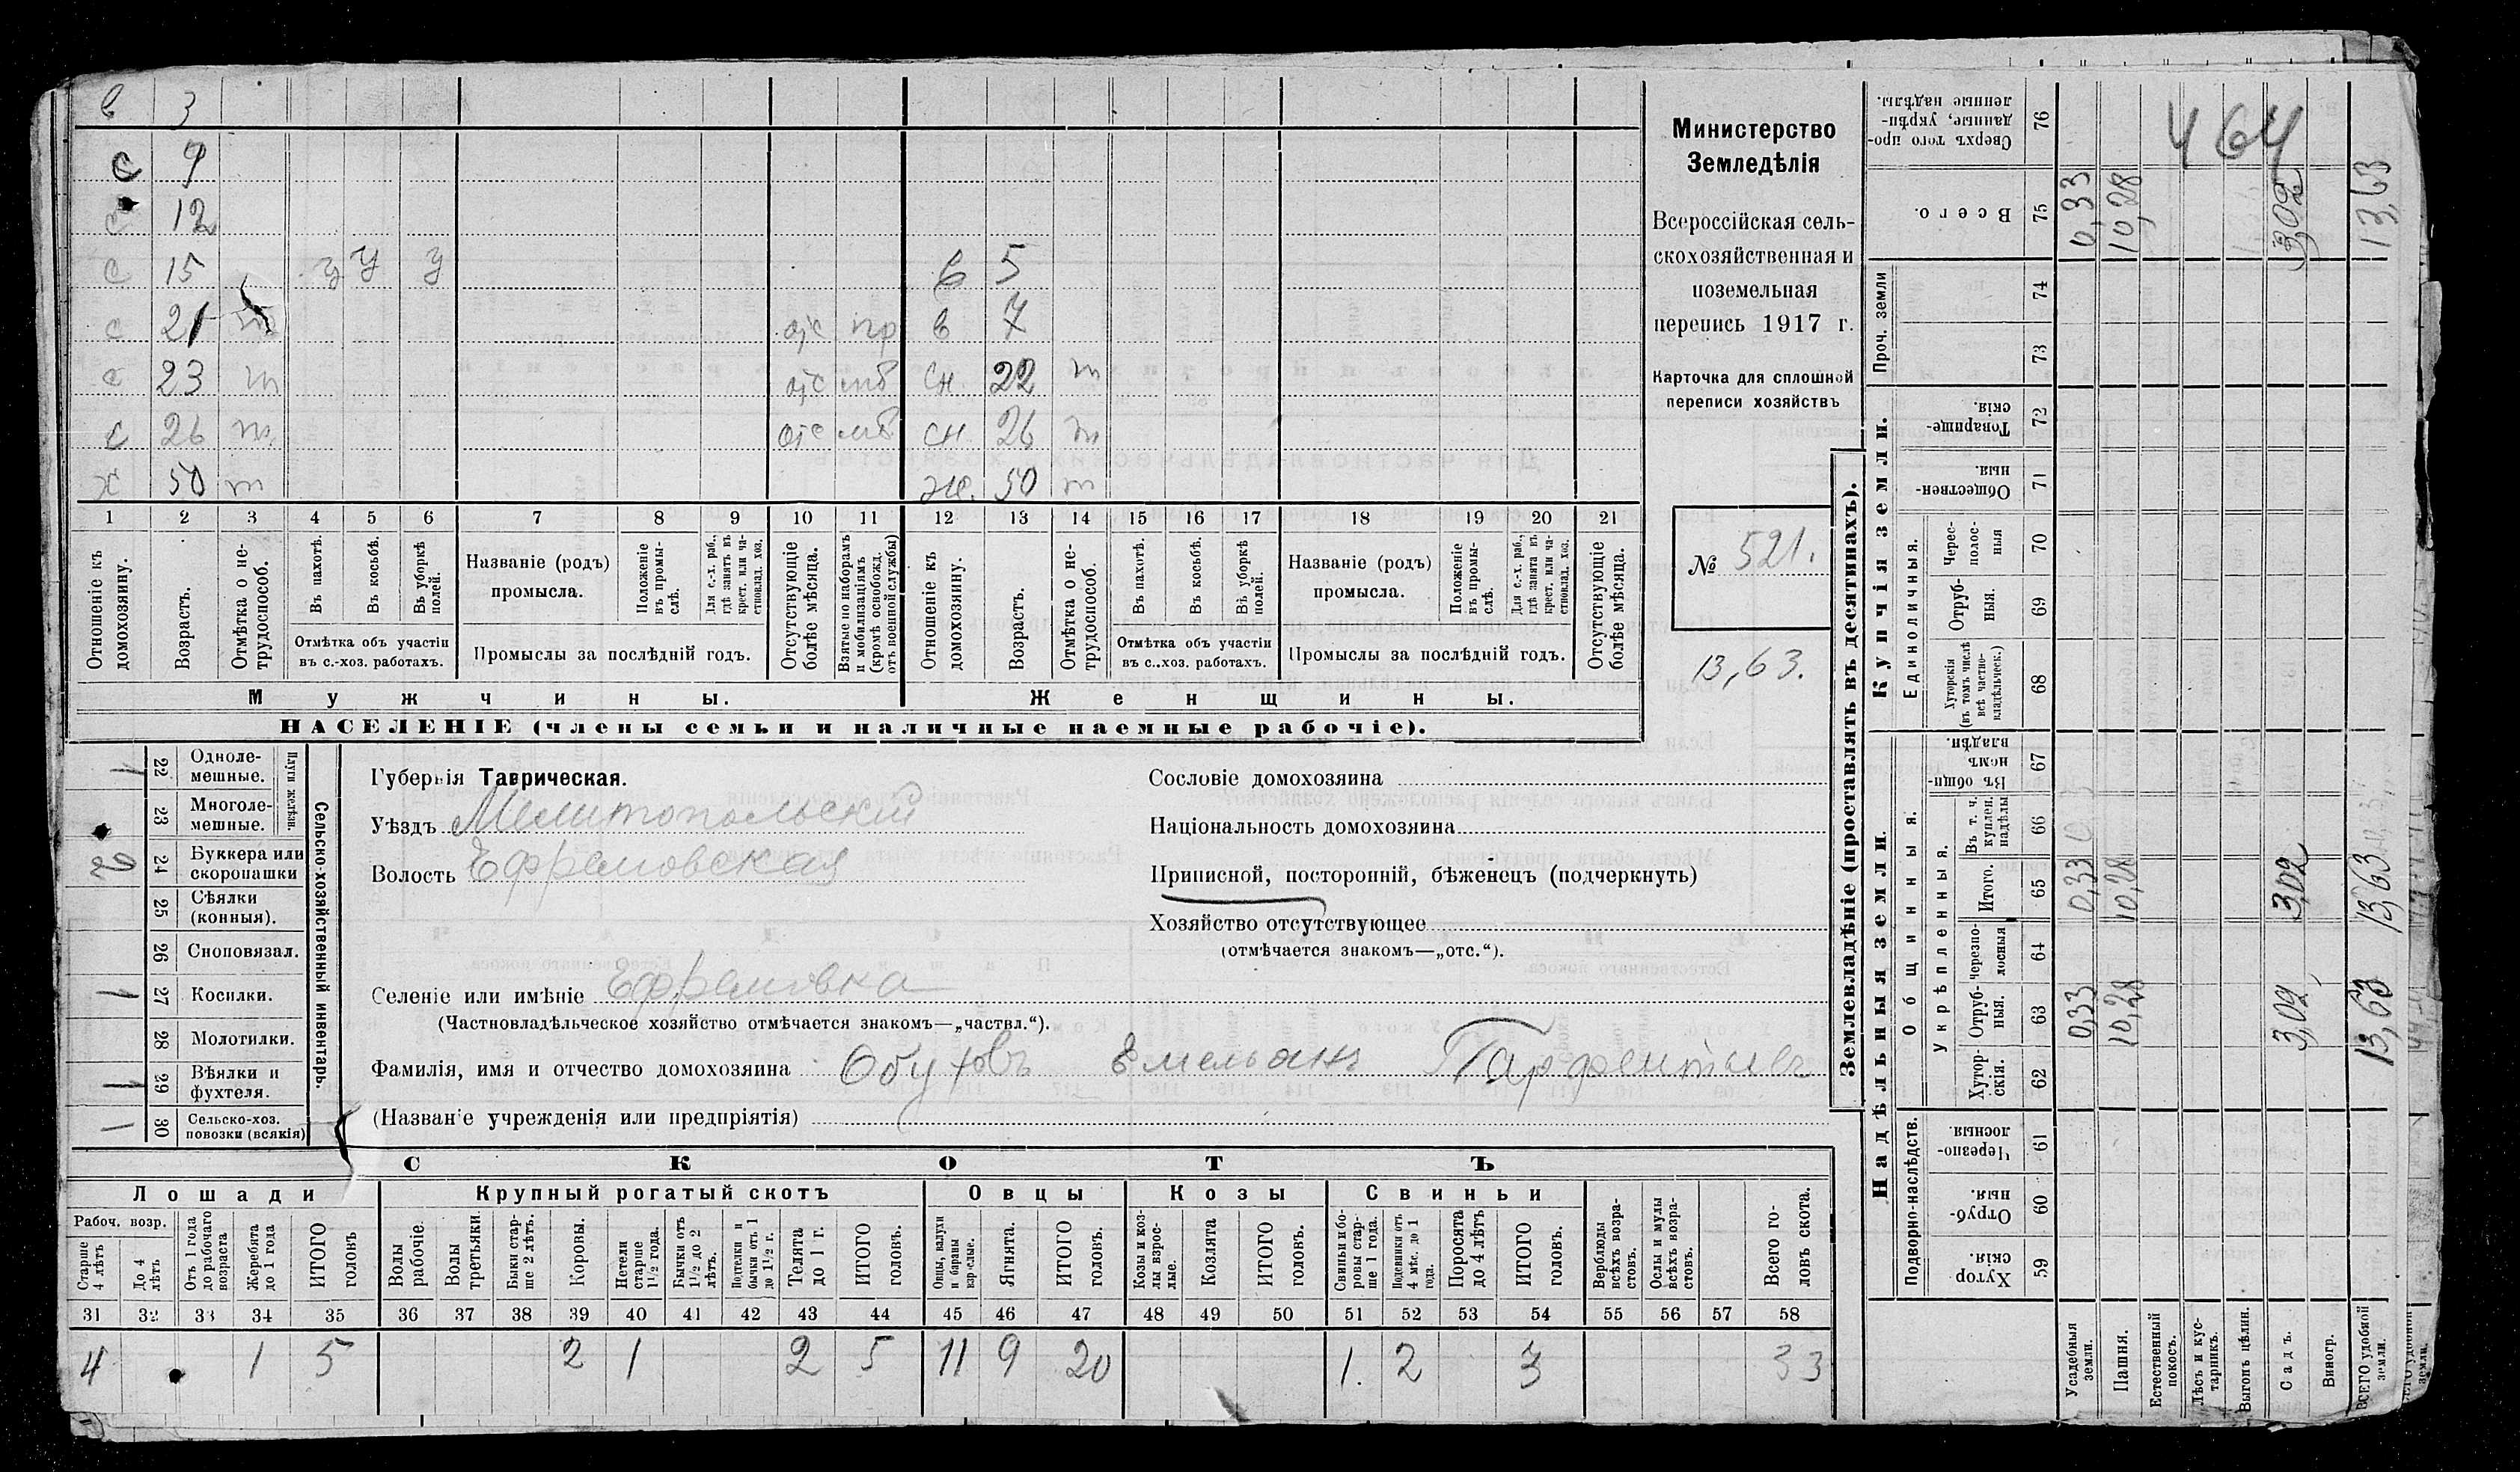 в 3
с 9
с 12
с 15 у у у в 5
с 21 отс пр в 7
с 23 т отс мб сн. 22 т
с 26 т. отс мб сн. 26 т
х 50 т же. 50 т
1 2 3 4 5 6 7 8 9 10 11 12 13 14 15 16 17 18 19 20 21
Отношеніе къ домохозяину.
Возрастъ.
Отмѣтка о не-трудоспособ.
Въ пахотѣ.
Въ косьбѣ.
Въ уборкѣ полей.
Отмѣтка объ участіи
въ с.-хоз. работахъ.
Названіе (родъ)
промысла.
Положеніе въ промы-слѣ.
Для с.-х. раб., гдѣ занятъ въ крест. или ча-стновлад. хоз.
Промыслы за послѣдній годъ.
Отсутствующіе болѣе мѣсяца.
Взятые по наборамъ и мобилизаціямъ (кромѣ освобожд. отъ военной службы)
Отношеніе къ домохозяину.
Возрастъ.
Отмѣтка о не-трудоспособ.
Въ пахотѣ.
Въ косьбѣ.
Въ уборкѣ полей.
Отмѣтка объ участіи
въ с..хоз. работахъ.
Названіе (родъ)
промысла.
Положеніе въ промы-слѣ.
Для с.-х. раб., гдѣ занята въ крест. или ча-стновлад. хоз.
Промыслы за послѣдній годъ.
Отсутствующіе болѣе мѣсяца.
Мужчины. Женщины.
НАСЕЛЕНІЕ (члены семьи и наличные наемные рабочіе).
Министерство
Земледѣлія
Всероссійская сель-
скохозяйственная и
поземельная
перепись 1917 г.
Карточка для сплошной
переписи хозяйствъ
№ 521.
13,63.
Сельско-хозяйственный инвентарь.
Плуги желѣзн.
1 22 Одноле-мешные.
23 Многоле-мешные.
2 24 Буккера или скоропашки
25 Сѣялки (конныя).
26 Сноповязал.
1 27 Косилки.
28 Молотилки.
1 29 Вѣялки и фухтеля.
1 30 Сельско-хоз. повозки (всякія)
Губернія Таврическая.
Уѣздъ Мелитопольскій
Волость Ефремовская
Сословіе домохозяина
Національность домохозяина
Приписной, посторонній, бѣженецъ (подчеркнуть)
Хозяйство отсутствующее
(отмѣчается знакомъ—„отс.“).
Селеніе или имѣніе Ефремовка
(Частновладѣльческое хозяйство отмѣчается знакомъ—„частвл.“).
Фамилія, имя и отчество домохозяина Обуховъ Емельянъ Парфентьевъ
(Названіе учрежденія или предпріятія)
СКОТЪ
Лошади Крупный рогатый скотъ Овцы Козы Свиньи
Рабоч. возр.
Старше 4 лѣтъ
До 4 лѣтъ
Отъ 1 года до рабочаго возраста
Жеребята до 1 года
ИТОГО головъ
Волы рабочіе.
Волы третьяки.
Быки стар-ше 2 лѣтъ.
Коровы.
Нетели старше 1 1/2 года.
Бычки отъ 1 1/2 до 2 лѣтъ.
Подтелки и бычки отъ 1 до 1 1/2 г.
Телята до 1 г.
ИТОГО головъ.
Овцы, валухи и бараны взрослые.
Ягнята.
ИТОГО головъ.
Козы и коз-лы взрос-лые.
Козлята
ИТОГО головъ.
Свиньи и бо-ровы стар-ше 1 года.
Подсвинки отъ 4 мѣс. до 1 года.
Поросята до 4 лѣтъ
ИТОГО головъ.
Верблюды всѣхъ возра-стовъ.
Ослы и мулы всѣхъ возра-стовъ.
Всего го-ловъ скота.
31 32 33 34 35 36 37 38 39 40 41 42 43 44 45 46 47 48 49 50 51 52 53 54 55 56 57 58
4 1 5 2 1 2 5 11 9 20 1. 2 3 33
Землевладѣніе (проставлять въ десятинахъ).
Надѣльныя земли. Купчія земли.
Подворно-наслѣдств.
Общинныя.
Укрѣпленныя.
Единоличныя.
Проч. земли
Хутор скія. 59
Отруб-ныя. 60
Черезпо-лосныя. 61
Хутор-скія. 62
Отруб-ныя. 63
Черезпо-лосныя 64
Итого. 65
Въ т. ч. куплен. надѣлы 66
Въ общин-номъ владѣн. 67
Хуторскія (въ томъ числѣ всѣ частно-владѣльческ.) 68
Отруб-ныя. 69
Черес-полос-ныя 70
Обществен-ныя. 71
Товарище-скія. 72
73
74
Всего. 75
Сверхъ того про-данные, укрѣп-ленные надѣлы. 76
464
Усадебныя земли. 0,33 0,33 0,33
Пашня. 10,28 10,28 10,28
Естественный покосъ.
Лѣсъ и кус-тарникъ.
Выгонъ цѣлин.
Садъ. 3,02 3,02 3,02
Виногр.
ВСЕГО удобной земли. 13,63 13,63 13,63